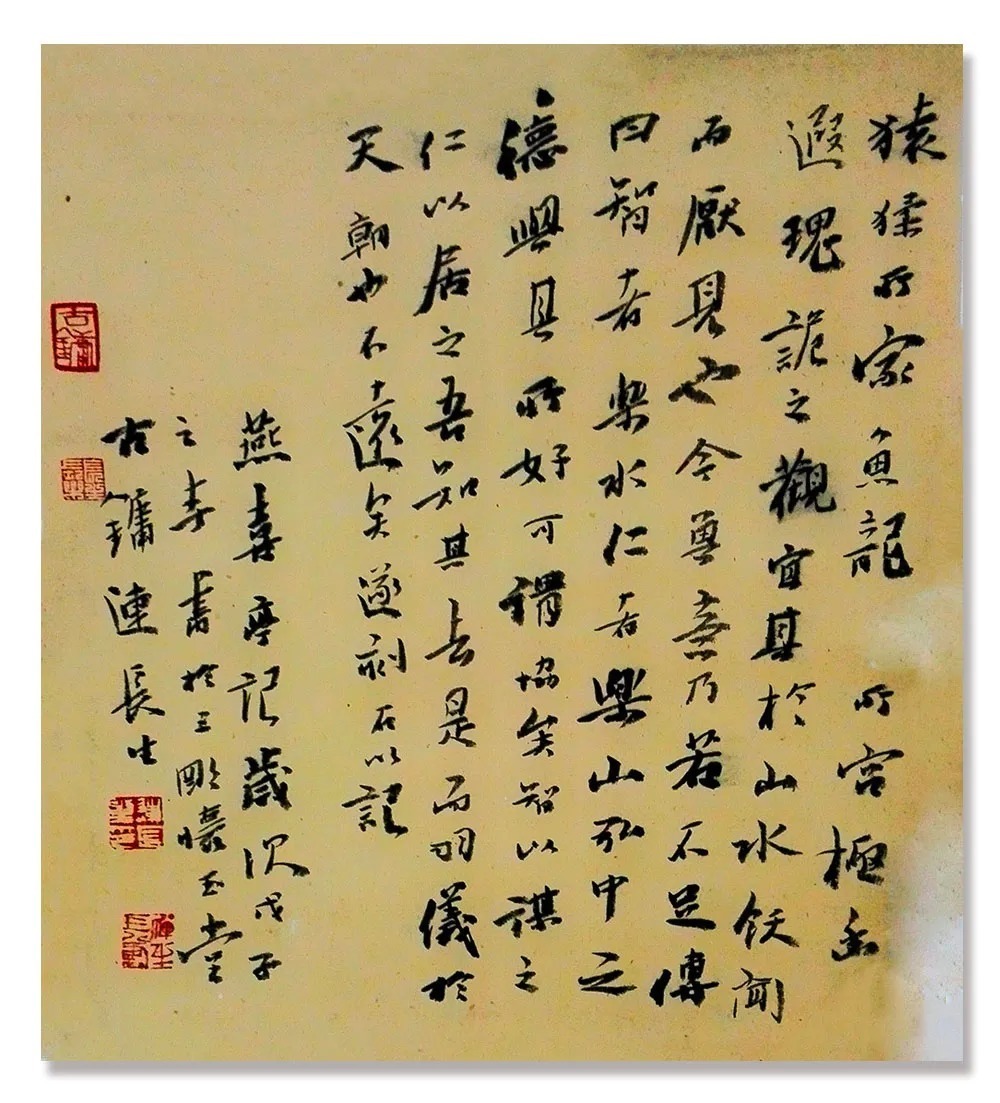 猿狖所家魚龍所宮極幽
遐瑰詭之觀宜其於山水飫聞
而厭見也今其意乃若不足傳
曰智者樂水仁者樂山弘中之
德與其所好可謂協矣智以謀之
仁以居之吾知其去是而羽儀於
天朝也不遠矣遂刻石以記
燕喜亭記歲次戊子
之春書於三雕懷玉堂
古鏞連長生
古鏞